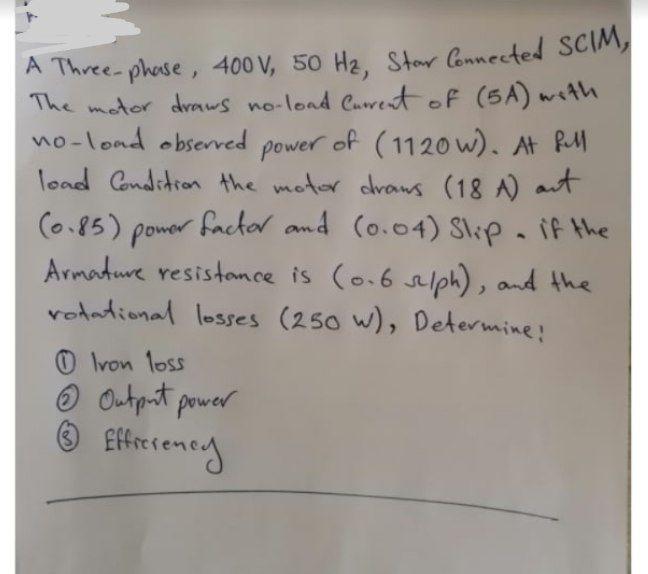 A Three-phase, 400V, 50 Hz, Star Connected SCIM,
The motor draws no-load Current of (5A) with
no-load observed power of (1120 W). At full
load Condition the motor draws (18 A) at
(0.85) power factor and (0.04) Slip. if the
Armature resistance is (0.6 Ω/ph), and the
rotational losses (250 W), Determine:
① Iron loss
② Output power
③ Efficiency